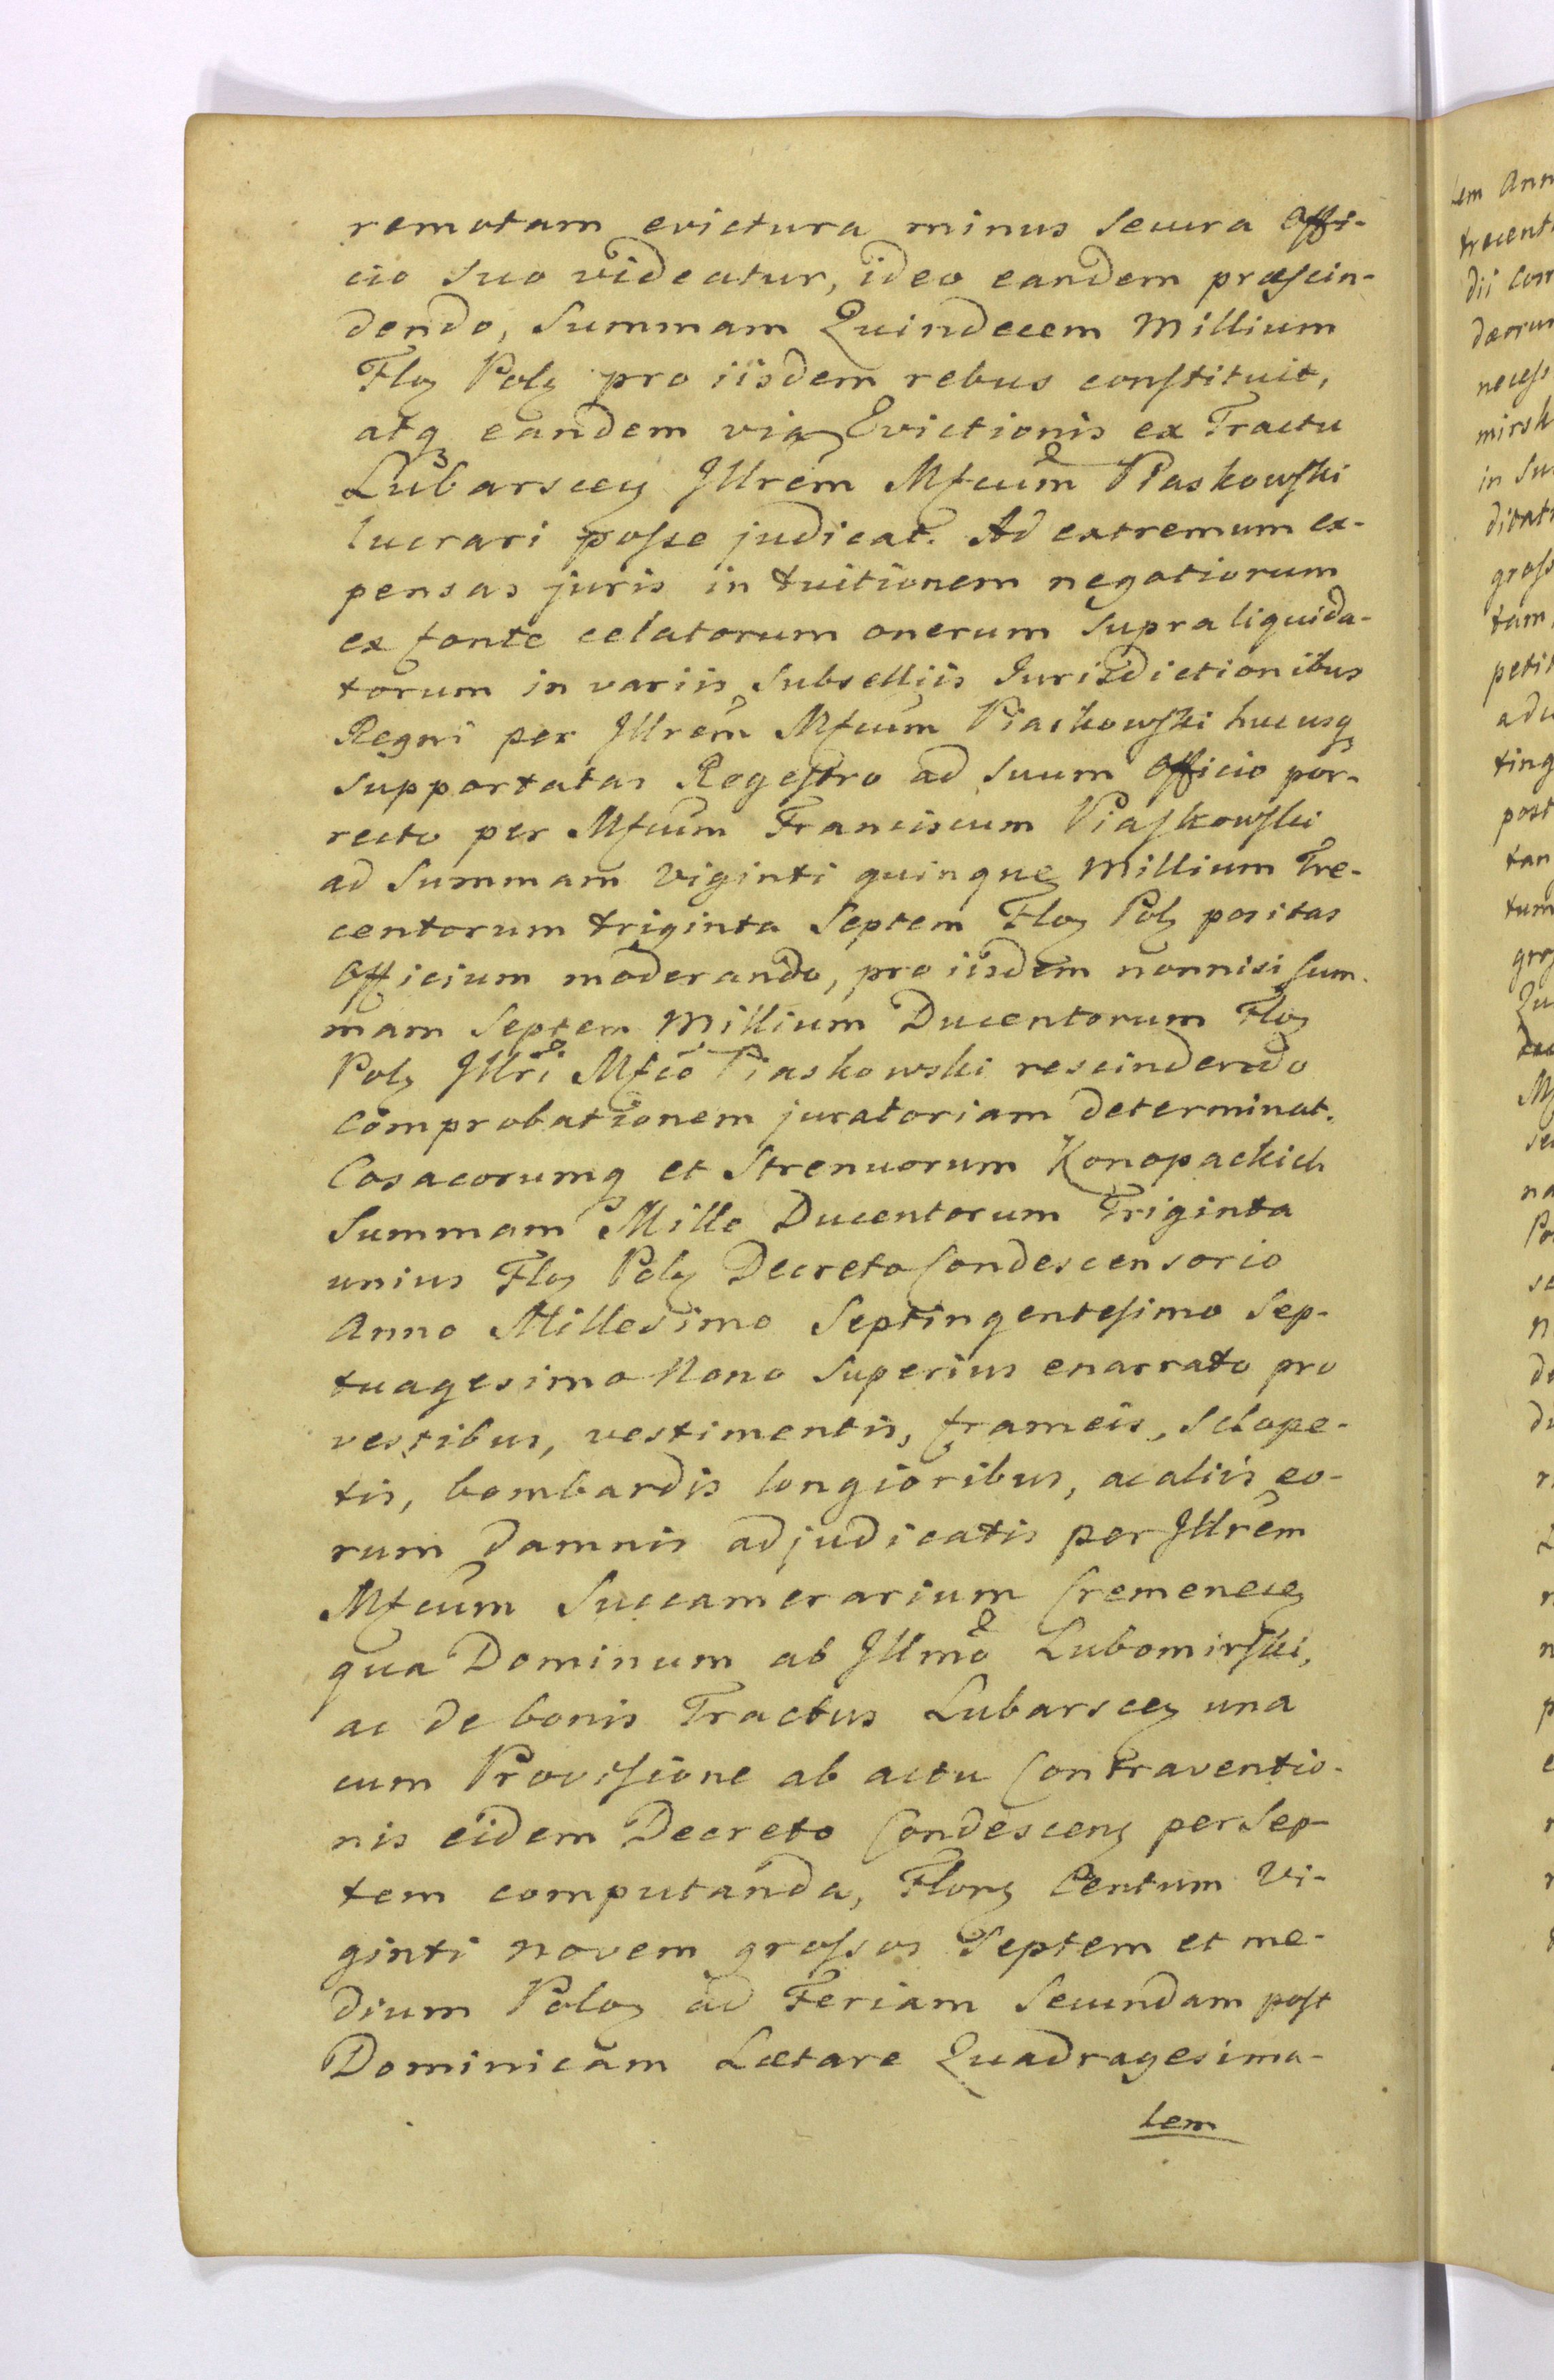 remotam evictura minus secura Offi-
cio suo videatur, ideo eandem præscin-
dendo, Summam Quindecem Millium
Floꝫ Polꝫ pro iisdem rebus constituit,
atqꝫ eandem via Evictionis ex Tractu
Lubarsceꝫ Jllrem Mfcum Piaskowski
lucrari posse judicat. Ad extremum ex-
pensas juris in tuitionem negotiorum
ex fonte celatorum onerum supra liquida-
torum in variis Subselliis Jurisdictionibus
Regni per Jllrem Mfcum Piaskowski hucusqꝫ
supportatas Regestro ad suum Officio por-
recto per Mfcum Franciscum Piaskowski
ad Summam Viginti quinque Millium Tre-
centorum triginta Septem Floꝫ Polꝫ positas
Officium moderando, pro iisdem nonnisi Sum-
mam Septem Millium Ducentorum Floꝫ
Polꝫ Jllri Mfco Piaskowski rescindendo
Comprobationem juratoriam determinat.
Cosacorumqꝫ et Strenuorum Konopackich
Summam Mille Ducentorum Triginta
unius Floꝫ Polꝫ Decreto Condescensorio
Anno Millesimo Septingentesimo Sep-
tuagesimo Nono Superius enarrato pro
vestibus, vestimentis, frameis, Sclope-
tis, bombardis longioribus, ac aliis eo-
rum damnis adjudicatis per Jllrem
Mfcum Succamerarium Cremeneceꝫ
qua Dominum ab Jllmo Lubomirski,
ac de bonis Tractus Lubarsceꝫ una
cum Provisione ab actu Contraventio-
nis eidem Decreto Condescenꝫ per Sep-
tem computanda, Florꝫ Centum Vi-
ginti novem grossos Septem et me-
dium Poloꝫ ad Feriam Secundam post
Dominicam Lætare Quadragesima-
lem